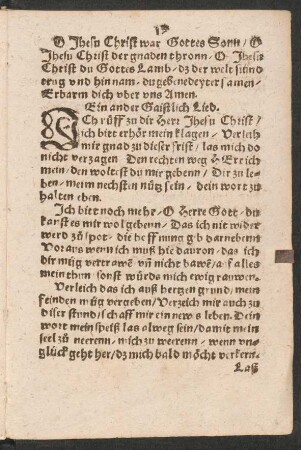 O Jhesu Christ war Gottes Sonn / O
Jhesu Christ der gnaden thronn / O Jhesu
Christ du Gottes Lamb / dz der welt sünd
trug vnd hin nam / du gebenedeyter samen /
Erbarm dich vber vns Amen.
Ein ander Gaistlich Lied.
Ich rüff zu dir Herr Jhesu Christ /
ich bitt erhör mein klagen / Verleih
mir gnad zu dieser frist / las mich do
nicht verzagen Den rechten weg HErr ich
mein / den woltest du mir gebenn / Dir zu le=
ben / meim nechsten nütz sein / dein wort zu
halten eben.
Ich bitt noch mehr / O Herre Gott / du
kanst es mir wol gebenn / Das ich nit wider
werd zu spot / die hoffnung gib darnebenn
Voraus wenn ich muß hie dauron / das ich
dir müg vertrawē vñ nicht bawē / auf alles
mein thun sonst würds mich ewig rauwen.
Verleich das ich auß hertzen grund / mein
feinden müg vergeben / Verzeich mir auch zu
diser stund / schaff mir ein news leben. Dein
wort mein speiß las alweg sein / damit mein
seel zü neeren / mich zu weeren / wenn vn=
glück geht her / dz mich bald möcht verkern.
Laß